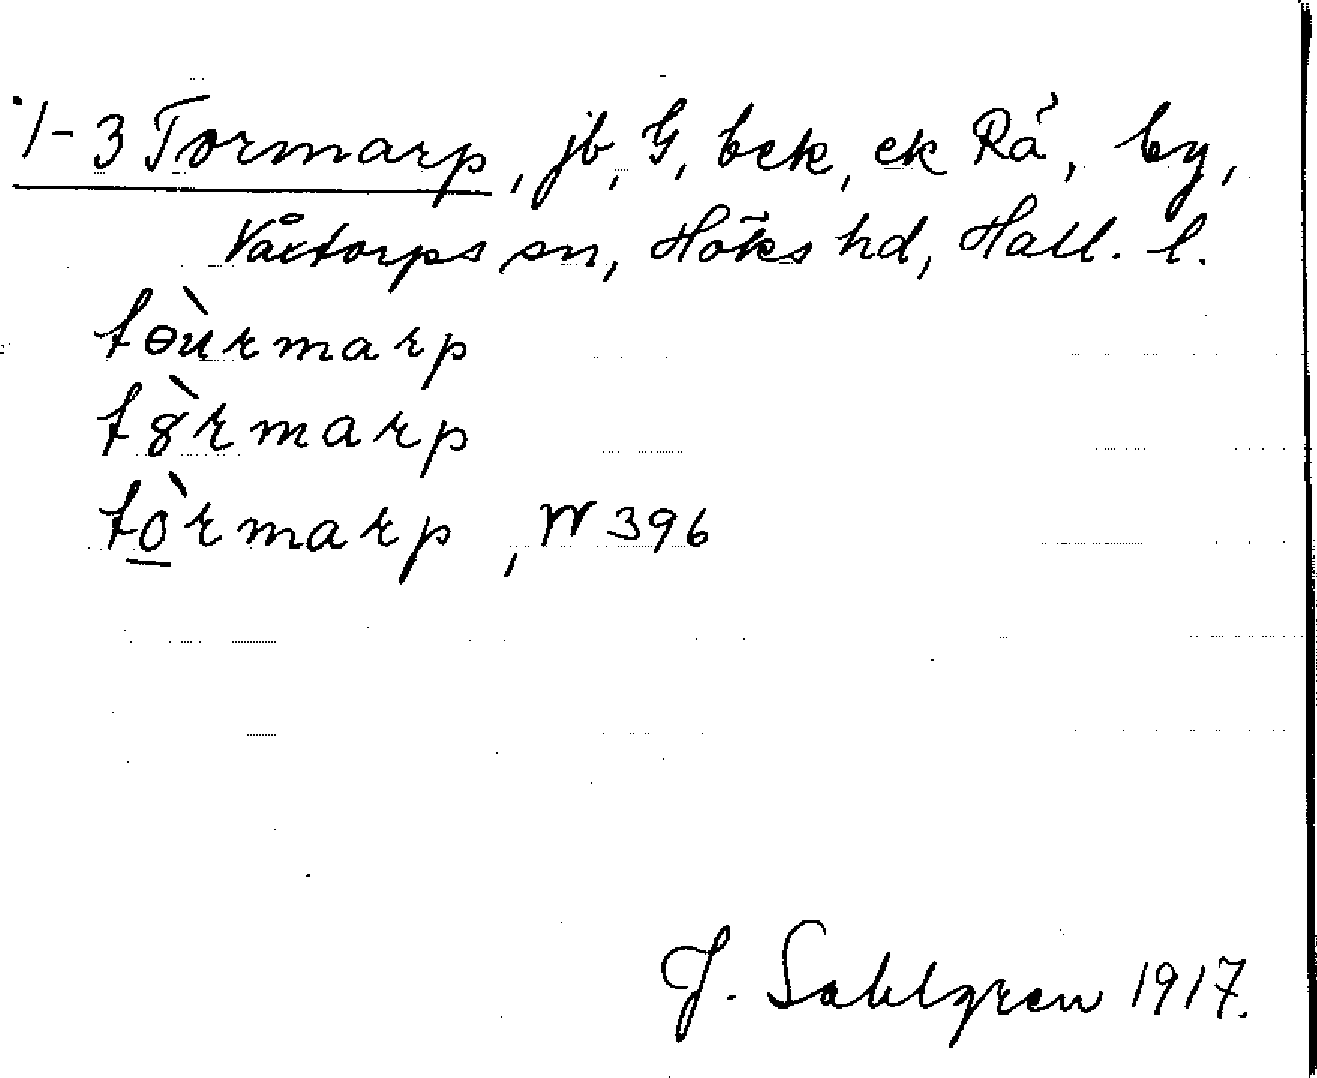 1-3 Tormarp, jb, G, bek, ek Rå, by,
Våxtorps sn, Höks hd, Hall. l.
tɵ̀urmarp
tȣ̀rmarp
tò̲rmarp, W 396
J. Sahlgren 1917.